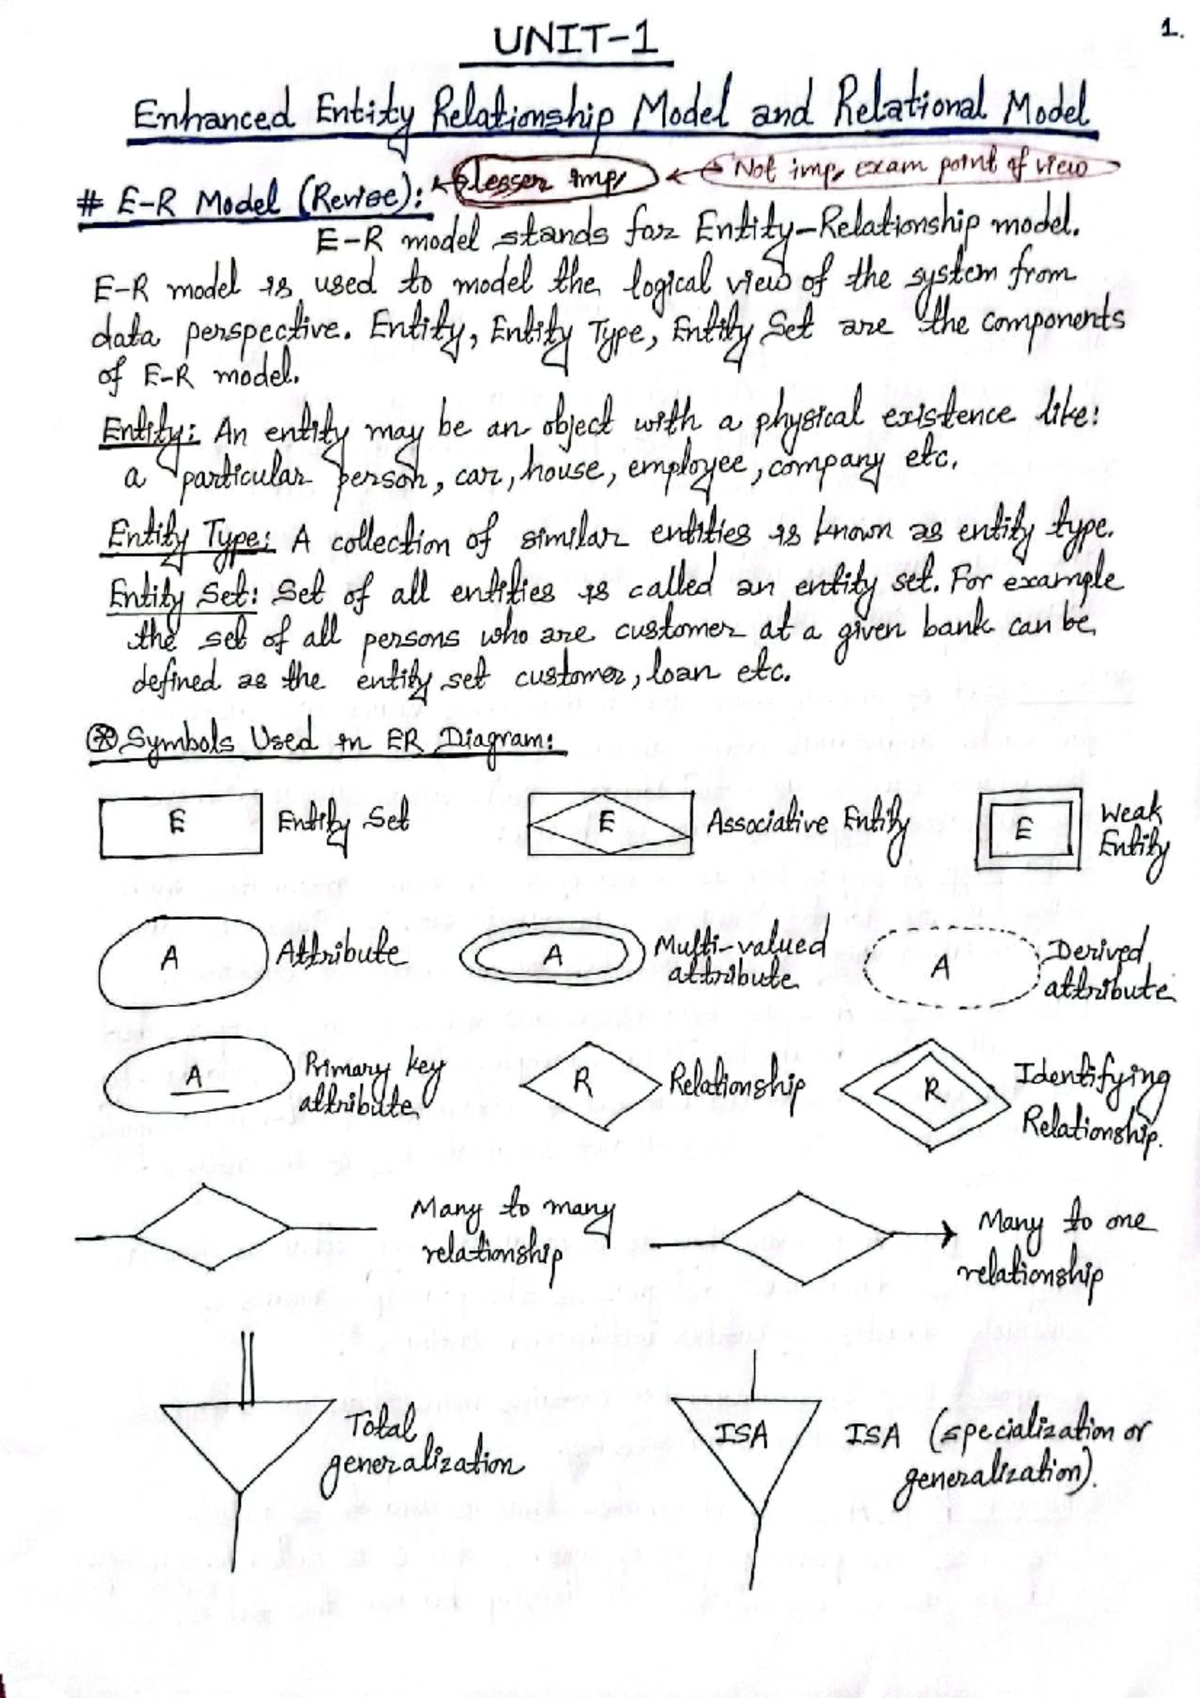 1.
UNIT-1
Enhanced Entity Relationship Model and Relational Model
# E-R Model (Revise): lesser imp, Not imp, exam point of view
E-R model stands for Entity-Relationship model.
E-R model is used to model the logical view of the system from
data perspective. Entity, Entity Type, Entity Set are the components
of E-R model.
Entity: An entity may be an object with a physical existence like:
a particular person, car, house, employee, company etc.
Entity Type: A collection of similar entities is known as entity type.
Entity Set: Set of all entities is called an entity set. For example
the set of all persons who are customer at a given bank can be
defined as the entity set customer, loan etc.
Symbols Used in ER Diagram:
E Entity Set E Associative Entity E Weak
Entity
A Attribute A Multi-valued
attribute A Derived
attribute
A Primary key
attribute R Relationship R Identifying
Relationship.
Many to many
relationship
Many to one
relationship
Total
generalization
ISA ISA (specialization or
generalization).